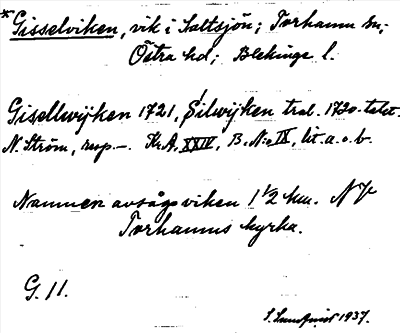 * Gisselviken, vik i Saltsjön; Torhamn sn;
Östra hd; Blekinge l.
Gisellwijken 1721, Silwijken trol. 1720-talet.
N. Ström, resp. –. K.A. XXIV, B. N:o IX, lit. a. o. b.
Namnen avsågo viken 1 1/2 km. NV
Torhamns kyrka.
G. 11.
S. Lundquist 1937.